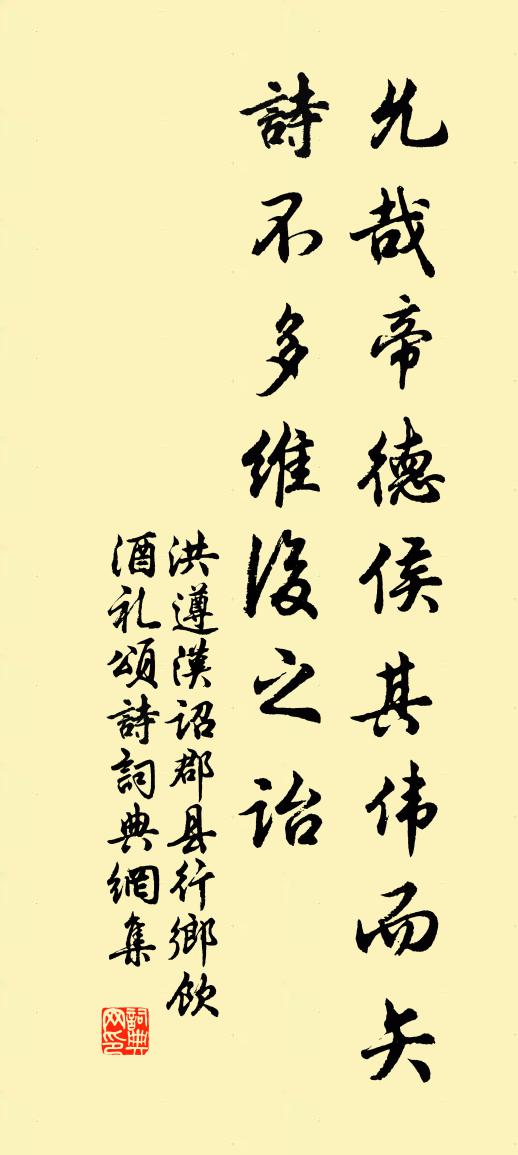 允哉帝德侯其伟而矢
詩不多维後之诒
洪遵漢诏郡县行鄉饮
酒礼頌詩詞典網集
詞典网印